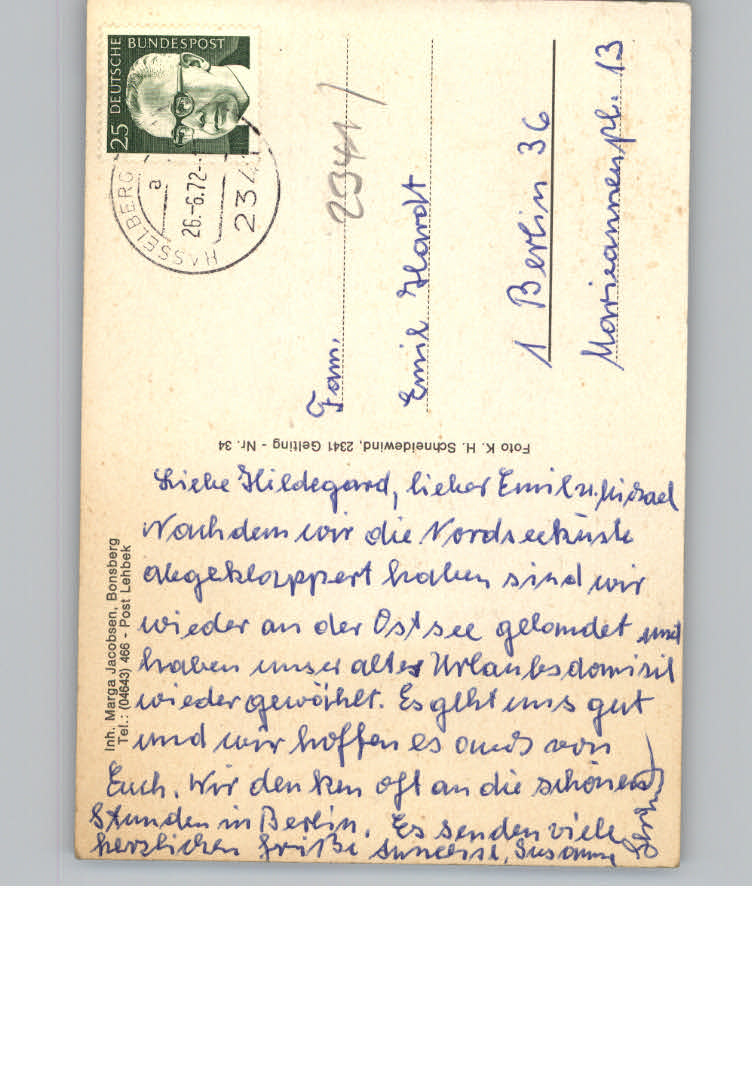 DEUTSCHE BUNDESPOST
25
HASSELBERG
a
26.-6.72-
234
2341
Fam.
Emil Hardt
1 Berlin 36
Mariannenpl. 13
Foto K. H. Schneidewind, 2341 Gelting - Nr. 34
Inh. Marga Jacobsen, Bonsberg
Tel.: (04643) 466 - Post Lehbek
Liebe Hildegard, lieber Emil u. Michael
Nachdem wir die Nordseeküste
abgeklappert haben sind wir
wieder an der Ostsee gelandet und
haben unser altes Urlaubsdomizil
wieder gewählt. Es geht uns gut
und wir hoffen es auch von
Euch. Wir denken oft an die schönen
Stunden in Berlin. Es senden viele
herzlichen Grüße Susanne